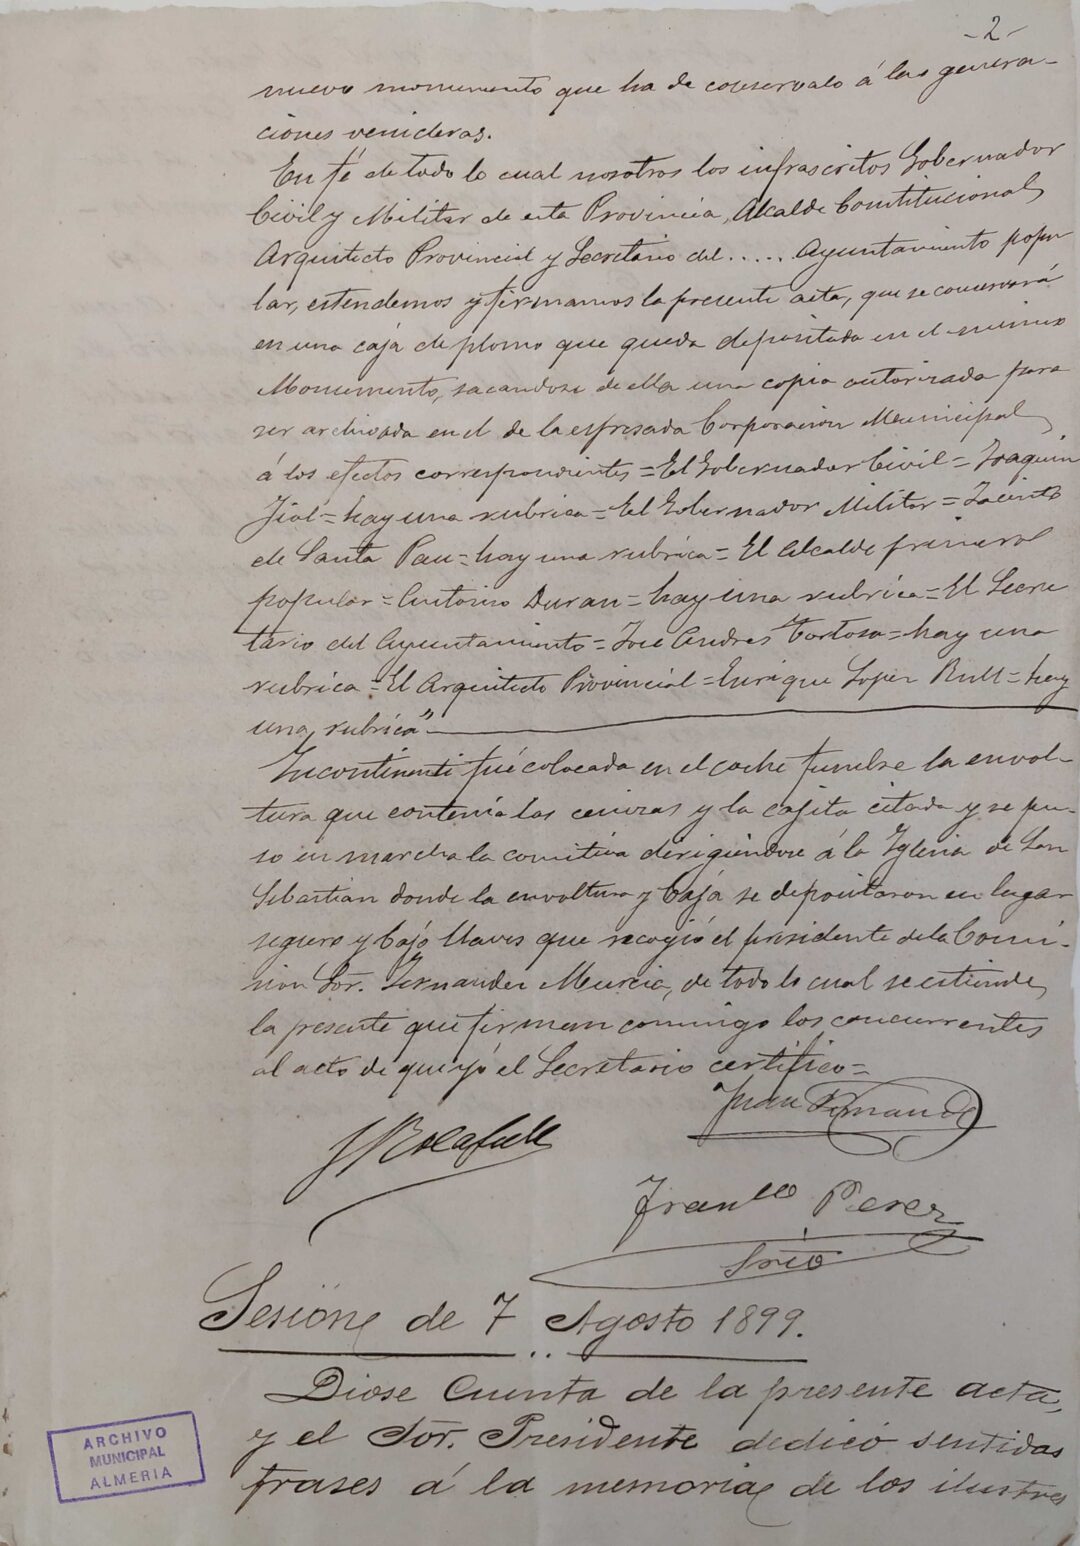 -2-
nuevo monumento que ha de conservalo á las genera-
ciones venideras.
En fé de todo lo cual nosotros los infrascritos Gobernador
Civil y Militar de esta Provincia, Alcalde Constitucional,
Arquitecto Provincial y Secretario del ..... Ayuntamiento popu
lar, estendemos y firmamos la presente acta, que se conservará
en una caja de plomo que queda depositada en el mismo
Monumento, sacandose de ella una copia autorizada para
ser archivada en el de la espresada Corporacion Municipal
á los efectos correspondientes = El Gobernador Civil = Joaquin
Fiol = hay una rubrica = El Gobernador Militar = Jacinto
de Santa Pau = hay una rubrica = El Alcalde primero
popular = Antonio Duran = hay una rubrica = El Secre
tario del Ayuntamiento = José Andres Tortosa = hay una
rubrica = El Arquitecto Provincial = Enrique Lopez Rull = hay
una rubrica"
Incontinenti fué colocada en el coche funebre la envol-
tura que contenia las cenizas y la cajita citada y se pu-
so en marcha la comitiva dirigiendose á la Iglesia de San
Sebastian donde la envoltura y Caja se depositaron en lugar
seguro y bajo llaves que recogió el presidente de la Comi-
sion Sor. Fernandez Murcia, de todo lo cual se estiende,
la presente que firman conmigo los concurrentes
al acto de que yó el Secretario certifico =
Juan Fernandez
Franco Perez
Srio
Sesion de 7 Agosto 1899.
Diose Cuenta de la presente acta,
y el Sor. Presidente dedicó sentidas
frases á la memoria de los ilustres
ARCHIVO
MUNICIPAL
ALMERIA